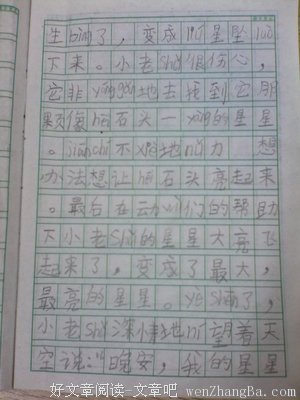 生bìng了，变成liú星坠luò
下来。小老shǔ很伤心，
它非 yǒnggǎn地去找到它朋
颗像hēi石头一yàng的星星
。jiānchí不xiè地nǔ力 想
办法想让hēi石头亮起来
。最后在们的帮助
下小老shǔ的星星大亮飞
起来了，变成了最大，
最亮的星星。yè shēn了，
小老shǔ深地望着天
空说："晚安，我的星星
好文章阅读-文章吧 wenZhangBa.com